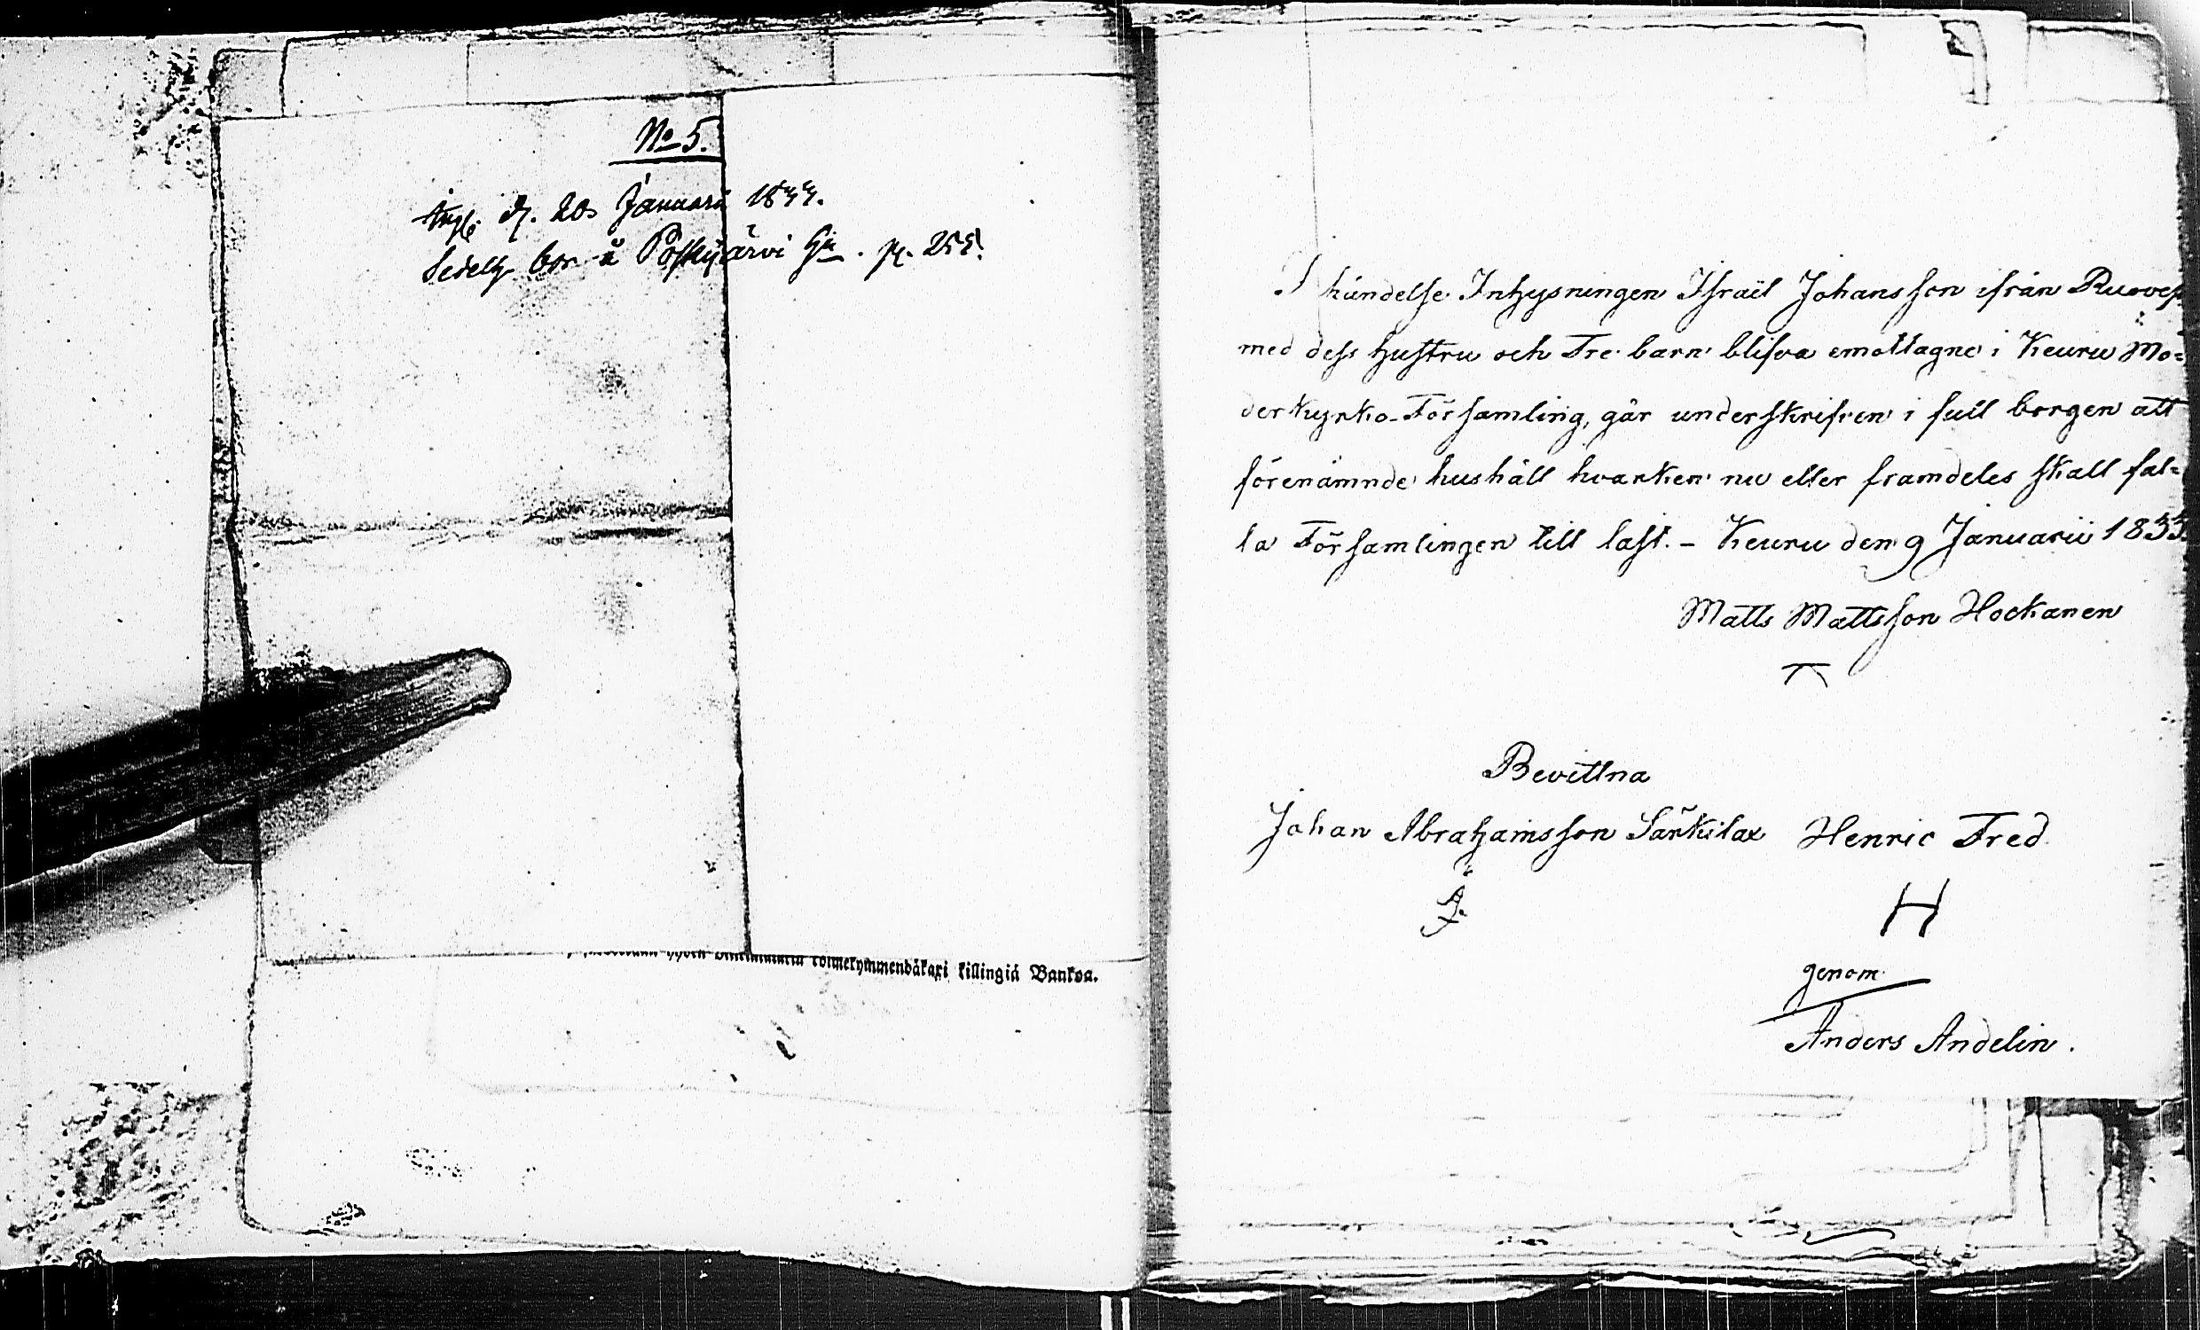 No 5.
d. 20 Januarii 1833.
bor å Poskijärvi Gd. p. 255.
kolmekymmendäkaxi killingiä Bankoa.
I händelse Inhysningen Israël Johansson ifrån Ruoves
med dess hustru och Tre barn blifva emottagne i Keuru Mo=
derkyrko-Församling, går underskrifven i full borgen att
förenämnde hushåll hvarken nu eller framdeles skall fal=
la Församlingen till last. – Keuru den 9 Januarii 1833.
Matts Mattsson Hockanen
Bevittna
Johan Abrahamsson Särkilax Henric Fred
H
genom
Anders Andelin.